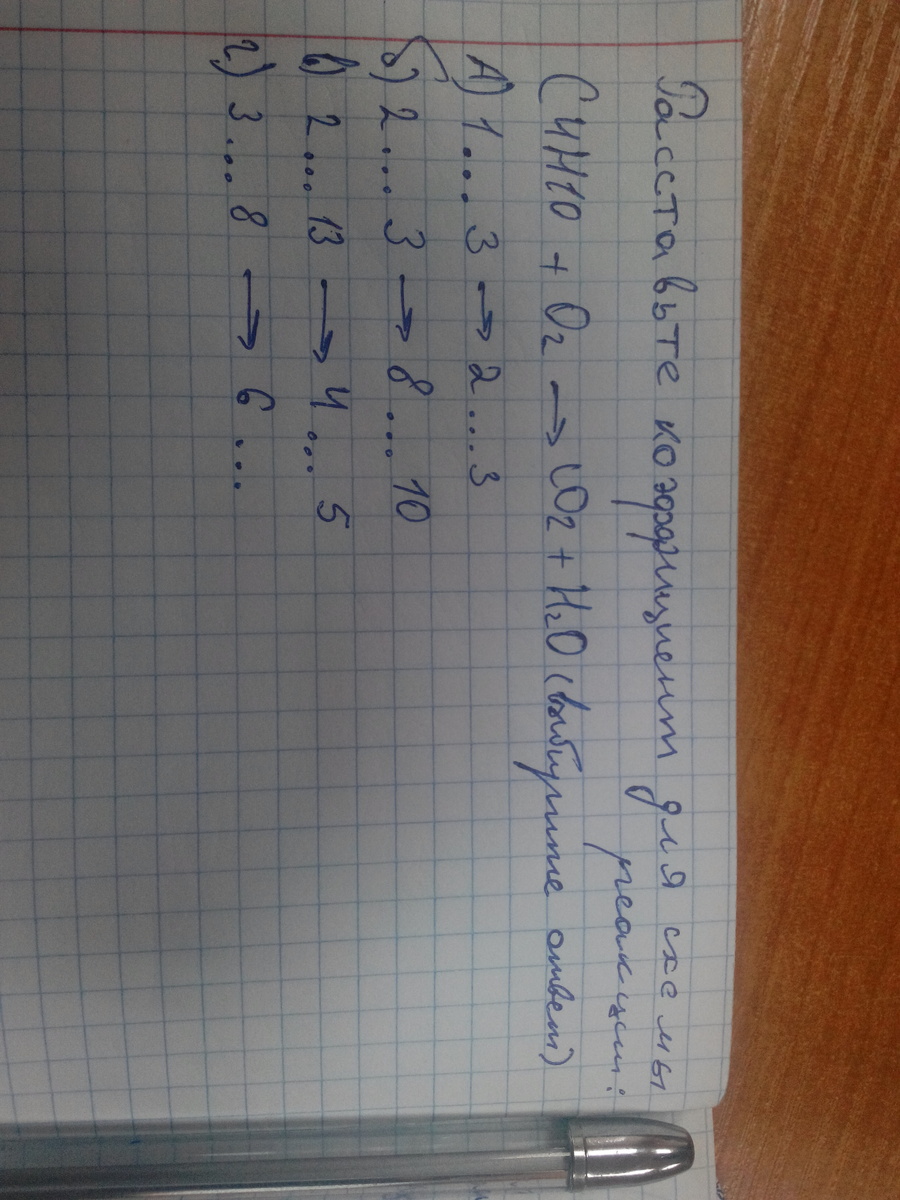 Расставьте коэффициент для схемы
реакции:
C4H10 + O2 → CO2 + H2O (выберите ответ)
А) 1... 3 → 2...3
б) 2... 3 → 8 ... 10
в) 2... 13 → 4 ... 5
г) 3... 8 → 6 ...